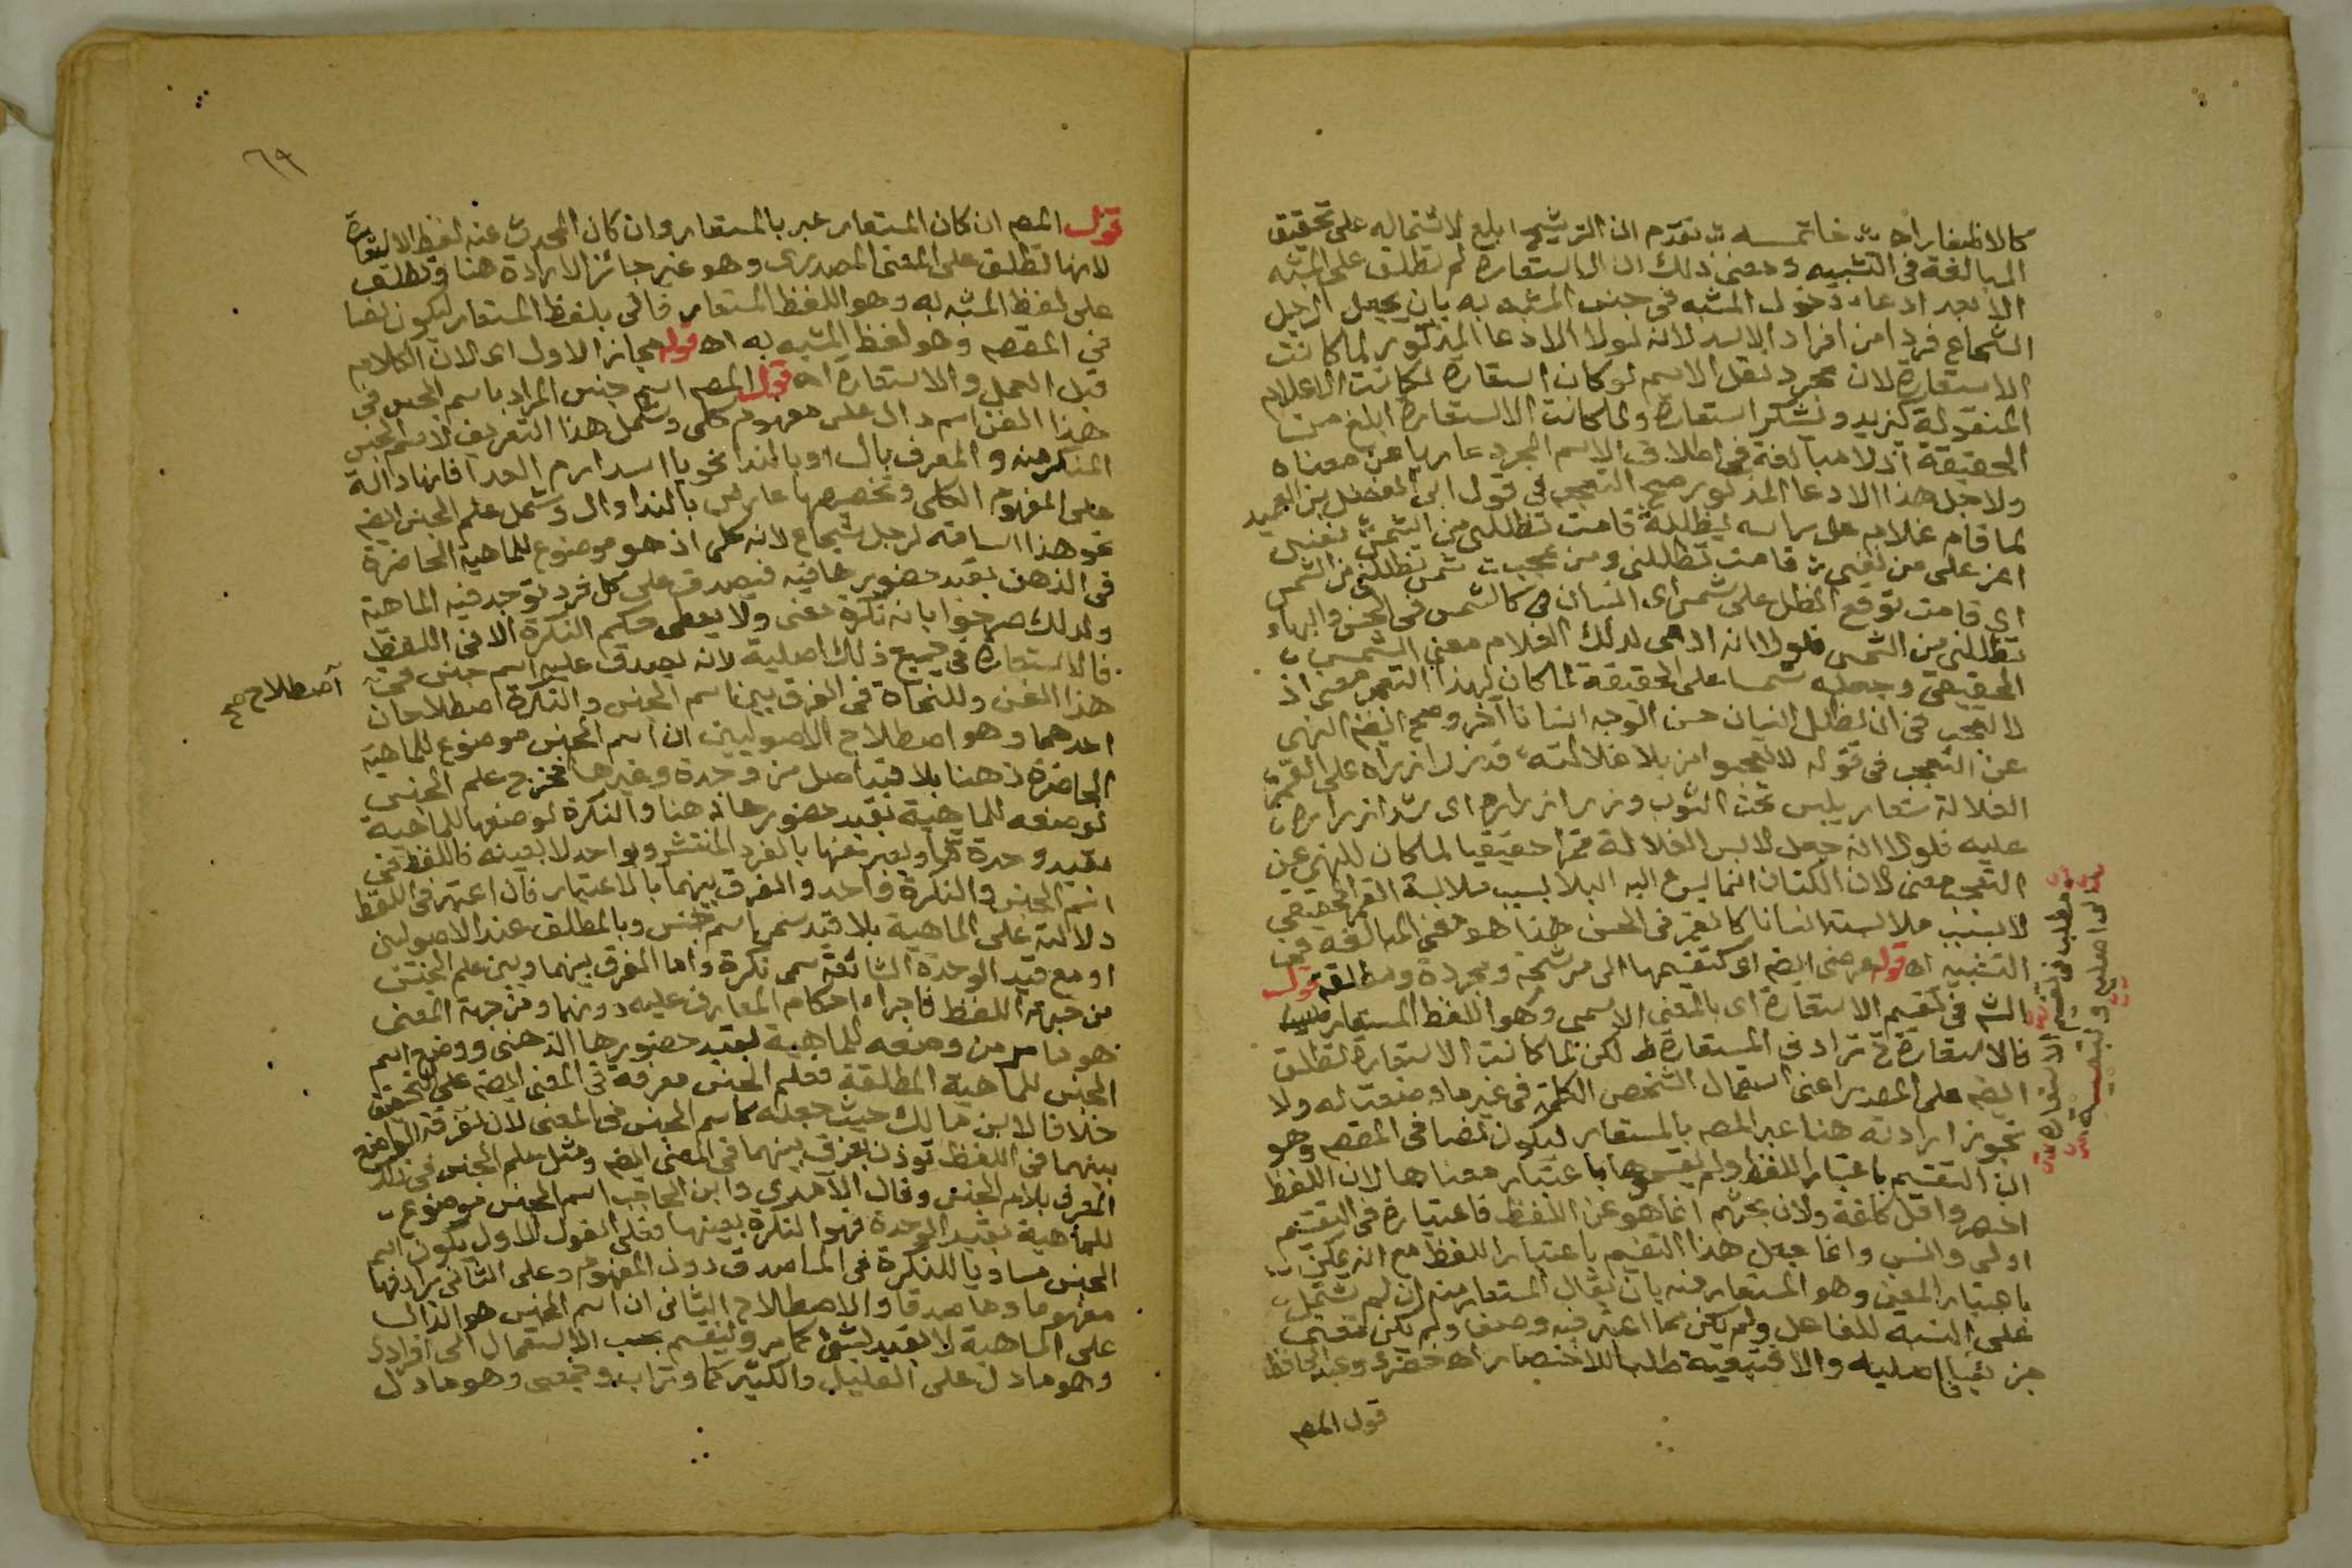 كالاظفار اه خاتمسه تقدم ان الترشيح ابلغ لاشتماله على تحقيق
المبالغة فى التشبيه ومعنى ذلك ان الاستعارة لم تطلق على المشبه
الا بعد ادعاء دخول المشبه فى جنس المشبه به بان يجعل الرجل
الشجاع فردا من افراد الاسد لانه لولا الادعا المذكور لما كانت
الاستعارة لان مجرد نقل الاسم لو كان استعارة لكانت الاعلام
المنقولة كيزيد ويشكر استعارة ولما كانت الاستعارة ابلغ من
الحقيقة اذ لا مبالغة فى اطلاق الاسم المجرد عاريا عن معناه
ولاجل هذا الادعا المذكور صح التعجب فى قول ابى الفضل بن العميد
لما قام غلام على راسه يظلله قامت تظللنى من الشمس نفس
اعز على من نفسى قامت تظللنى ومن عجب شمس تظللنى من الشمس
اى قامت توقع الظل على شمس اى انسان كالشمس فى الحسن والبهاء
تظللنى من الشمس فلولا انه ادعى لذلك الغلام معنى الشمس
الحقيقى وجعله شمسا على الحقيقة لما كان لهذا التعجب معنى اذ
لا تعجب فى ان يظلل انسان حسن الوجه انسانا آخر وصح ايضه النهى
عن التعجب فى قوله لا تعجبوا من بلا غلالته قد زر ازراره على القمر
الغلالة شعار يلبس تحت الثوب وزر ازراره اى شد ازراره
عليه فلولا انه جعل لابس الغلالة قمرا حقيقيا لما كان للنهى عن
التعجب معنى لان الكتان انما يسرع اليه البلا بسبب ملابسة القمر الحقيقى
لا بسبب ملابسته انسانا كالقمر فى الحسن هذا هو معنى المبالغة فى
التشبيه اه قوله عرضى ايضه اى كتقسيمها الى مرشحة ومجردة ومطلقة قول
الشه فى تقسيم الاستعارة اى بالمعنى الاسمى وهو اللفظ المستعار
فالاستعارة تراد فى المستعارة لكن لما كانت الاستعارة تطلق
ايضه على المصدر اعنى استعمال الشخص الكلمة فى غير ما وضعت له ولا
تجوز ارادته هنا عبر المصه بالمستعار ليكون نصا فى المقصه وهو
ان التقسيم باعتبار اللفظ ولم يقسموها باعتبار معناها لان اللفظ
اظهر واقل كلفة ولان بحثهم انما هو عن اللفظ فاعتباره فى التقسيم
اولى وانسب وانما جعل هذا التقسيم باعتبار اللفظ مع انه يمكن
باعتبار المعنى وهو المستعار منه بان يقال المستعار منه ان لم يشتمل
على النسبة للفاعل ولم يكن مما اعتبر فيه وصف ولم يكن معنى
جزئيا فاصليه والا فتبعية طلبا للاختصار اه خضرى وعبد الحافظ
قول المصه
مطلب فى تقسيم الاستعارة
الى اصلية وتبعية
٦٩
قول المصه ان كان المستعار عبر بالمستعار وان كان المحدث عنه لفظ الاستعارة
لانها تطلق على المعنى المصدرى وهو غير جائز الارادة هنا وتطلق
على لفظ المشبه به وهو اللفظ المستعار فاتى بلفظ المستعار ليكون نصا
فى المقصه وهو لفظ المشبه به اه قوله مجاز الاول اى لان الكلام
قبل الحمل والاستعارة اه قول المصه اسم جنس المراد باسم الجنس فى
هذا الفن اسم دال على مفهوم كلى وشمل هذا التعريف لاسم الجنس
المنكر منه والمعرف بال او بالندا نحو يا اسدا ارم العدا فانها دالة
على المفهوم الكلى وتخصيصها عارض بالندا وال وشمل علم الجنس ايضه
نحو هذا اسامة لرجل شجاع لانه كلى اذ هو موضوع للماهية الحاضرة
فى الذهن بقيد حضورها فيه فيصدق على كل فرد توجد فيه الماهية
ولذلك صرحوا بانه نكرة معنى ولا يعطى حكم النكرة الا فى اللفظ
فالاستعارة فى جميع ذلك اصلية لانه يصدق عليه اسم جنس فى
هذا الفن وللنحاة فى الفرق بين اسم الجنس والنكرة اصطلاحان
احدهما وهو اصطلاح الاصوليين ان اسم الجنس موضوع للماهية
الحاضرة ذهنا بلا قيد اصل من وحدة وغيرها فخرج علم الجنس
لوضعه للماهية بقيد حضورها ذهنا والنكرة لوضعها للماهية
بقيد وحدة ما ويعبر عنها بالفرد المنتشر وبواحد لا بعينه فاللفظ فى
اسم الجنس والنكرة واحد والفرق بينهما بالاعتبار فان اعتبر فى اللفظ
دلالته على الماهية بلا قيد سمى اسم جنس وبالمطلق عند الاصوليين
او مع قيد الوحدة الشائعة سمى نكرة واما الفرق بينهما وبين علم الجنس
من جهة اللفظ فاجراء احكام المعارف عليه دونهما ومن جهة المعنى
هو ما مر من وضعه للماهية بقيد حضورها الذهنى ووضع اسم
الجنس للماهية المطلقة فعلم الجنس معرفة فى المعنى ايضه على التحقيق
خلافا لابن مالك حيث جعله كاسم الجنس فى المعنى لان تفرقة الواضع
بينهما فى اللفظ تؤذن بفرق بينهما فى المعنى ايضه ومثل علم الجنس فى ذلك
المعرف بلام الجنس وقال الآمدى وابن الحاجب اسم الجنس موضوع
للماهية بقيد الوحدة فهو النكرة بعينها فعلى القول الاول يكون اسم
الجنس مساويا للنكرة فى الماصدق دون المفهوم وعلى الثانى يرادفها
مفهوما وماصدقا والاصطلاح الثانى ان اسم الجنس هو الدال
على الماهية لا بقيد شئ كما مر وينقسم بحسب الاستعمال الى افرادى
وهو ما دل على القليل والكثير كما وتراب وجمعى وهو ما دل
اصطلاح صح